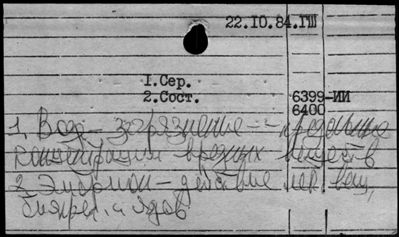 22.10.84.ГШ
1.Сер.
2.Сост. 6399-ИИ
6400
1. Вод – загрязнение – предельные
концентрации вредных веществ
2. Эмбрион – действие лек. вещ,
и ядов